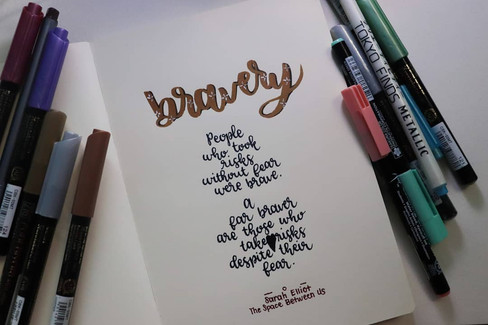 bravery
People
who took
risks
without fear
were brave.
a
far braver
are those who
take risks
despite their
fear.
Sarah Elliot
The Space Between Us
TOKYO FINDS
METALLIC